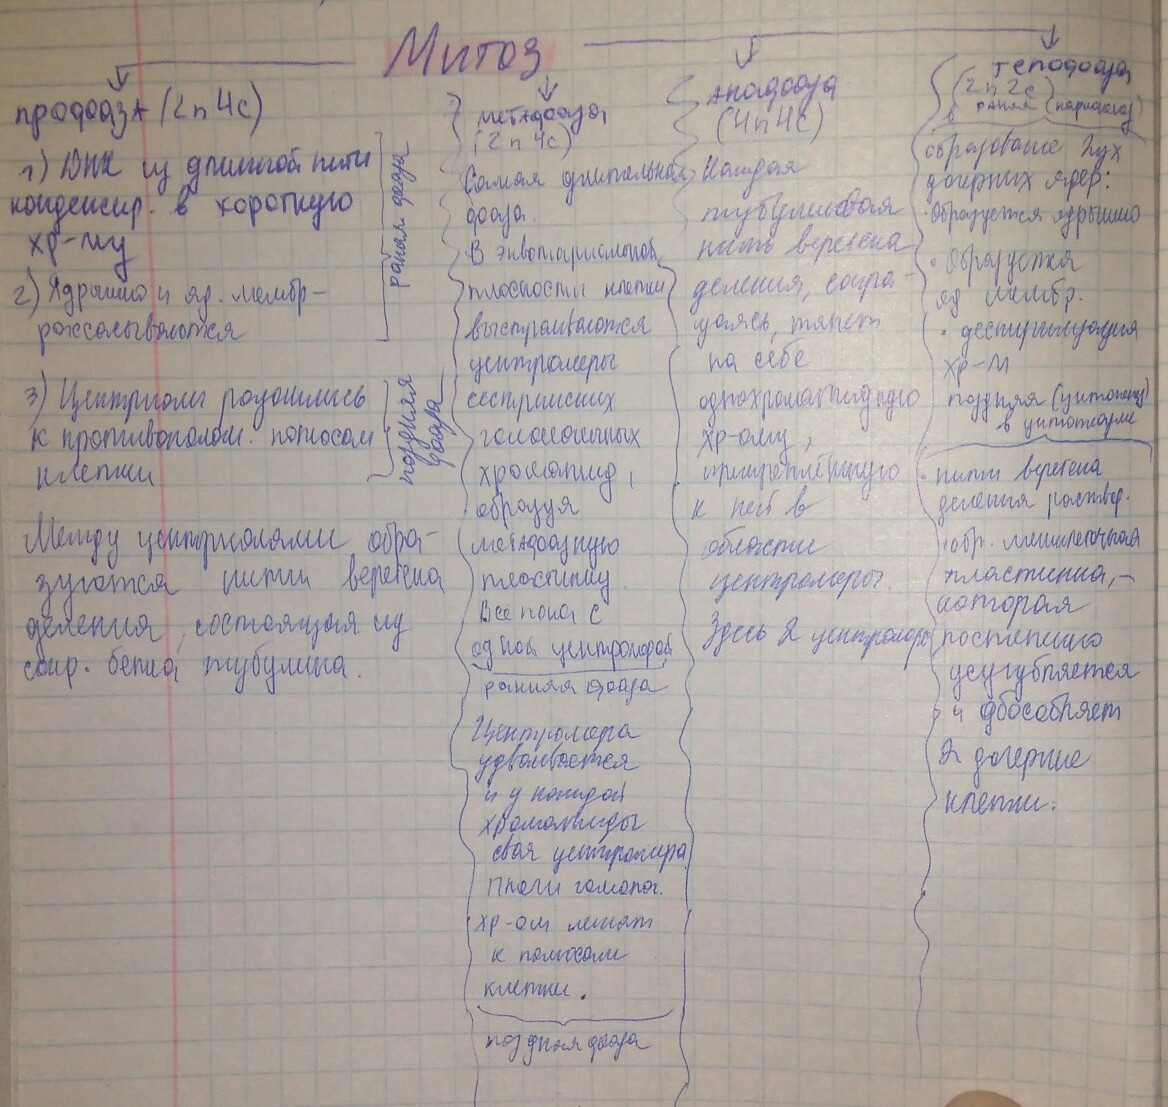 Митоз
профаза (2n4c)
1) ДНК из длинной нити
конденсир. в короткую
хр-му
2) Ядрышко и яд. мембр-
рассасываются
ранняя фаза
3) Центриоли разошлись
к противополож. полюсам
клетки
поздняя фаза
Между центриолями обра-
зуются нити веретена
деления, состоящая из
сокр. белка тубулина.
метафаза
(2n4c)
Самая длительная
фаза.
В экваториальной
плоскости клетки
выстраиваются
центромеры
сестринских
гомологичных
хроматид,
образуя
метафазную
пластинку.
Всё пока с
одной центромерой
ранняя фаза
Центромера
удваивается
и у каждой
хроматиды
своя центромера
Плечи гомолог.
хр-ом лежат
к полюсам
клетки.
поздняя фаза
анафаза
(4n4c)
Каждая
тубулиновая
нить веретена
деления, сокра-
щаясь, тянет
на себе
однохроматидную
хр-ому,
прикреплённую
к ней в
области
центромеры.
Здесь 2 центромеры
телофаза
(2n2c)
ранняя
образование 2ух
дочерних ядер:
· Образуется ядрышко
· Образуется
яд мембр.
· деспирализация
хр-м
поздняя (цитокинез)
в цитоплазме
· нити веретена
деления раствор.
· обр. клеточная
пластинка,-
которая
постепенно
усугубляется
и обособляет
2 дочерние
клетки.